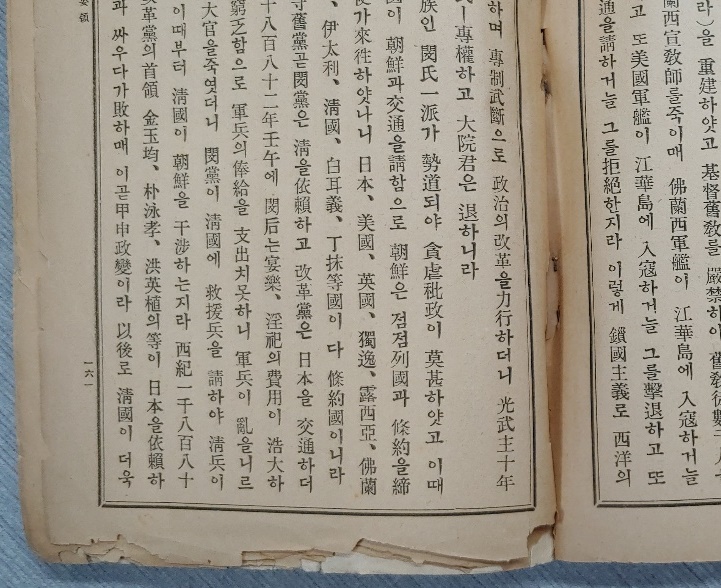 라)을 重建하얏고 基督舊敎를 嚴禁하야 舊敎徒數千人
蘭西宣敎師를죽이매 佛蘭西軍艦이 江華島에 入寇하거늘
고 또美國軍艦이 江華島에 入寇하거늘 그를擊退하고 또
通을請하거늘 그를拒絶한지라 이렇게 鎖國主義로 西洋의
하며 專制武斷으로 政治의改革을力行하더니 光武主十年
ㅣ專權하고 大院君은 退하니라
族인 閔氏一派가 勢道되야 貪虐秕政이 莫甚하얏고 이때
國이 朝鮮과交通을請함으로 朝鮮은 점점列國과 條約을締
使가來往하얏나니 日本、美國、英國、獨逸、露西亞、佛蘭
、伊太利、淸國、白耳義、丁抹等國이 다 條約國이니라
守舊黨곧閔黨은 淸을依賴하고 改革黨은 日本을 交通하더
十八百八十二年壬午에 閔后는宴樂、淫祀의費用이 浩大하
窮乏함으로 軍兵의俸給을 支出치못하니 軍兵이 亂을니르
大官을죽엿더니 閔黨이 淸國에 救援兵을 請하야 淸兵이
이때부터 淸國이 朝鮮을 干涉하는지라 西紀一千八百八十
改革黨의首領 金玉均、朴泳孝、洪英植의等이 日本을依賴하
과 싸우다가敗하매 이곧甲申政變이라 以後로 淸國이 더욱
領
一六一